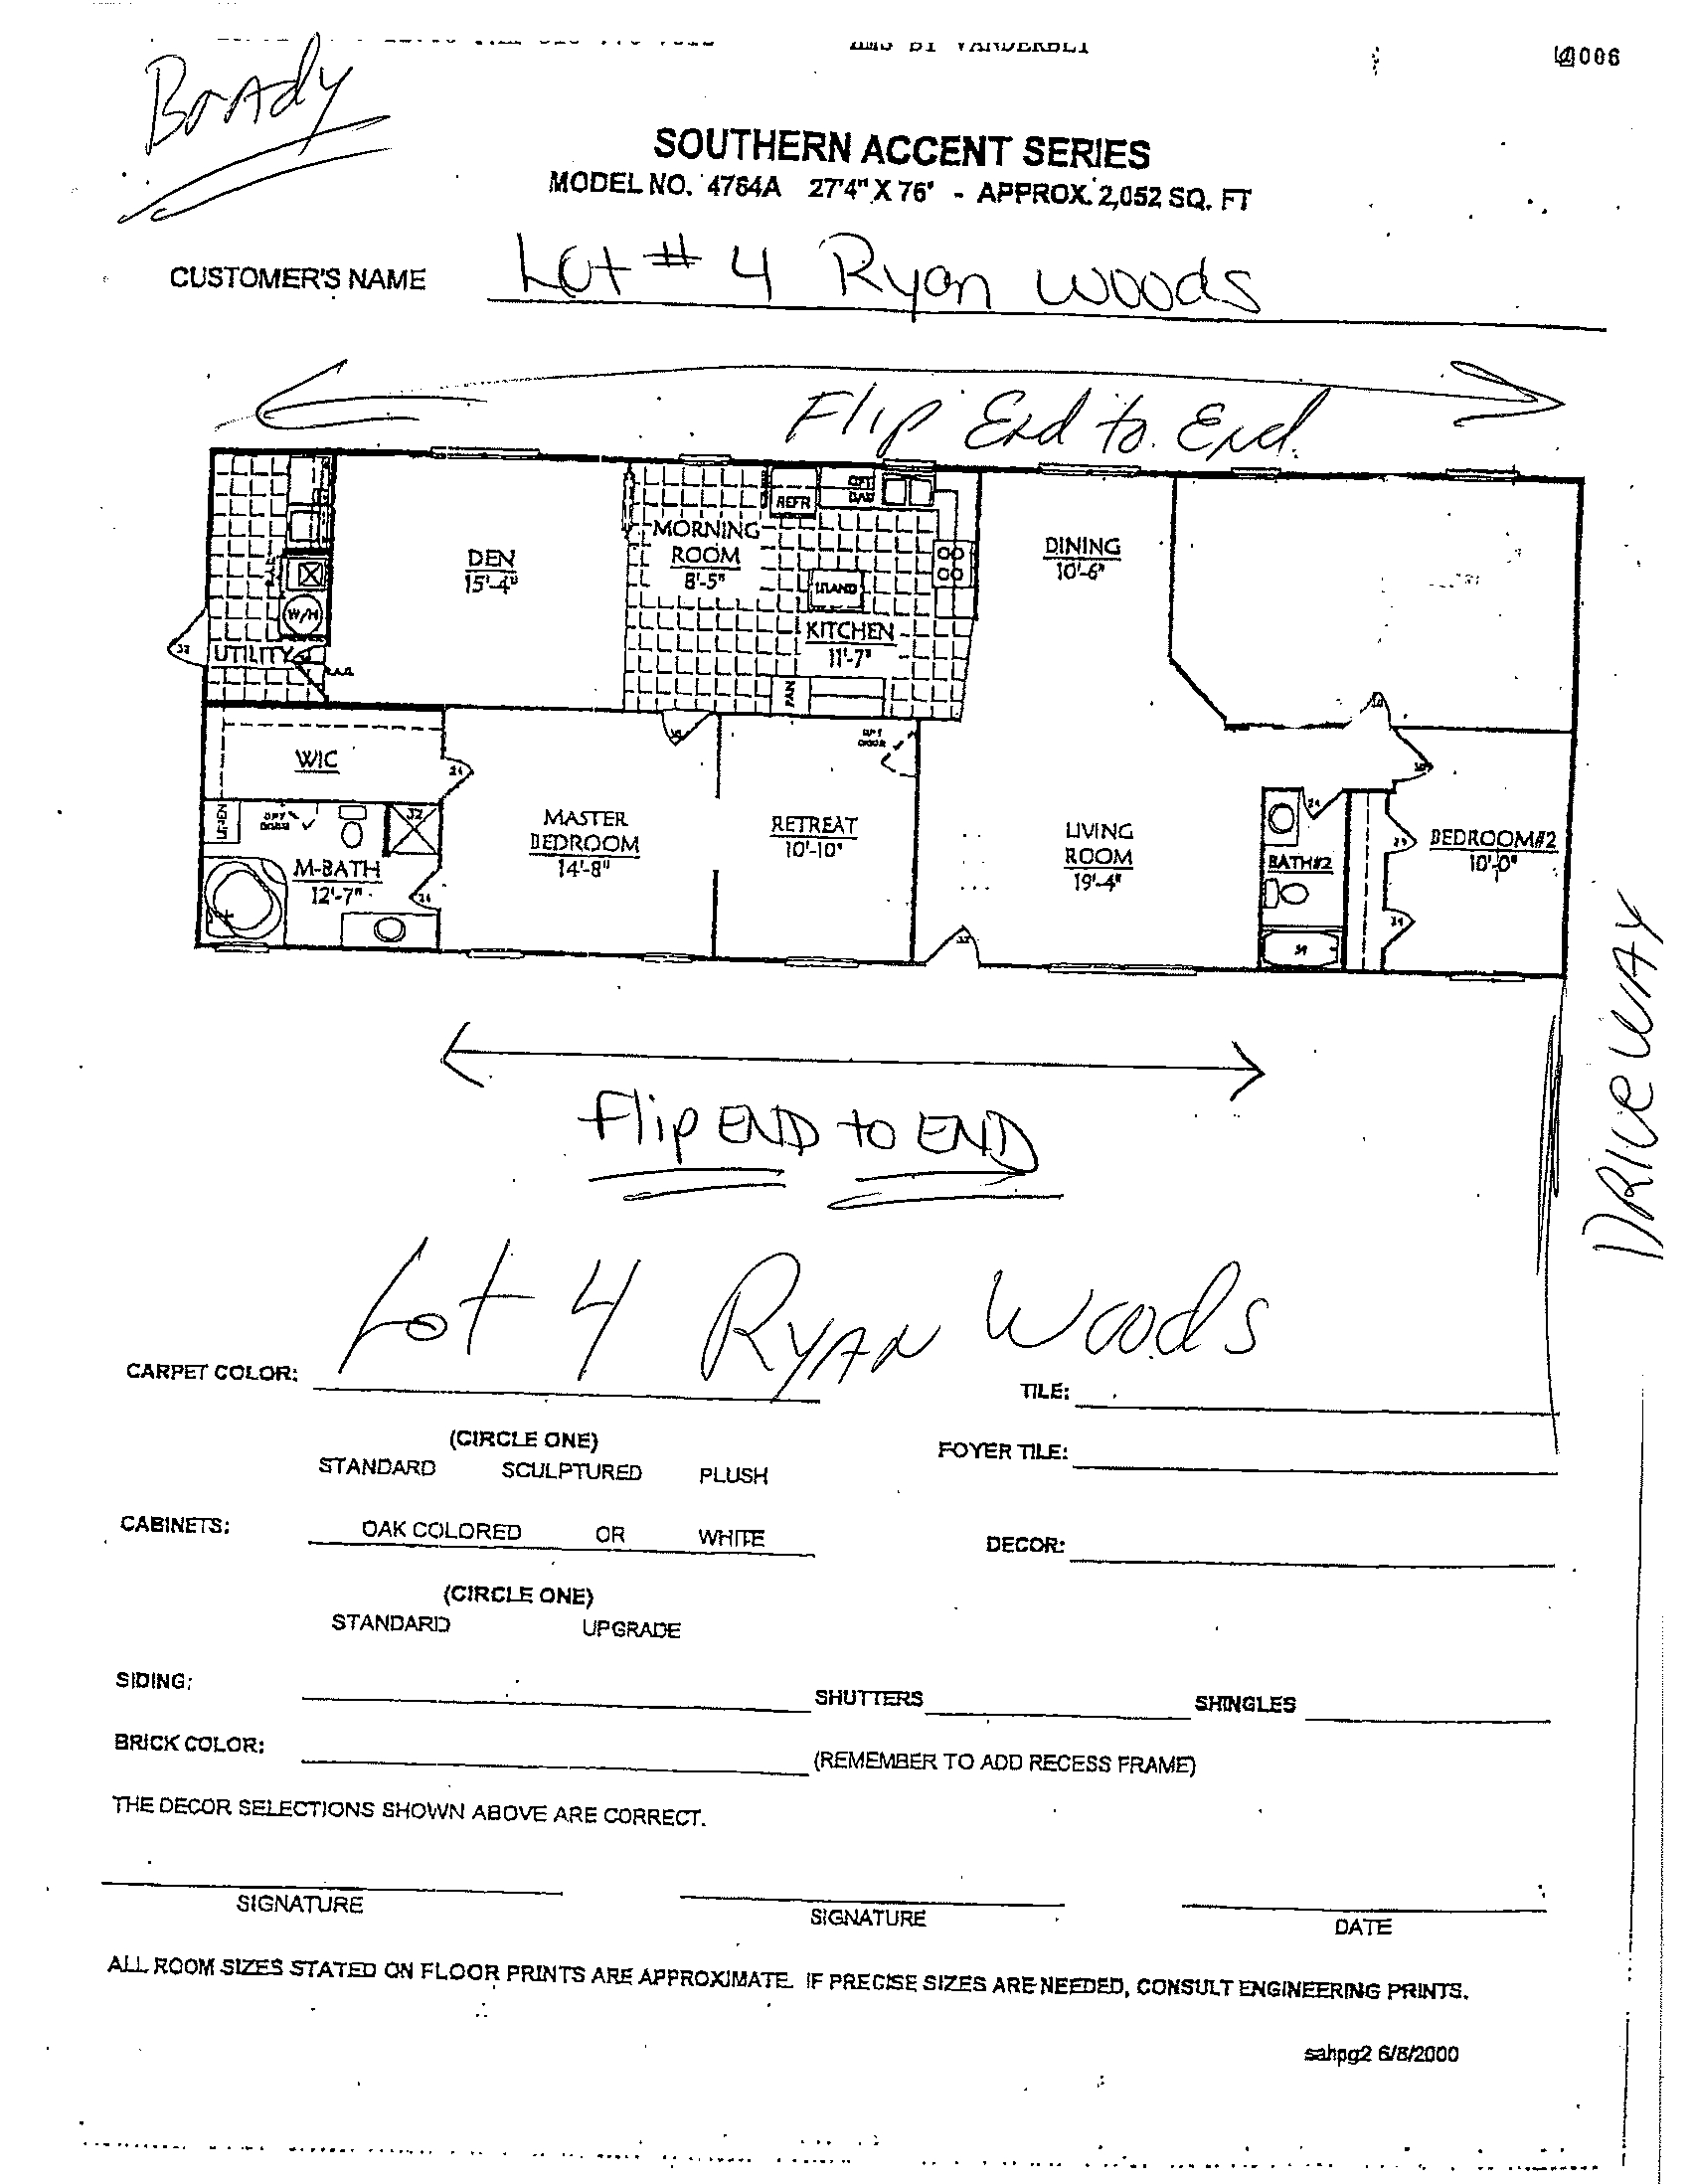 006
Brady
SOUTHERN ACCENT SERIES
MODEL NO. 4764A 27'4" X 76' - APPROX. 2,052 SQ. FT
CUSTOMER'S NAME Lot # 4 Ryan Woods
Flip End to End.
REFR
MORNING
ROOM
8'-5"
DEN
15'-4"
DINING
10'-6"
ISLAND
W/H
KITCHEN
11'-7"
UTILITY
PAN
WIC
OPT
DOOR
LINEN
OPT
DOOR
32
MASTER
BEDROOM
14'-8"
RETREAT
10'-10"
LIVING
ROOM
19'-4"
BATH#2
BEDROOM#2
10'-0"
M-BATH
12'-7"
DRIVEWAY
Flip END to END
Lot 4 RYAN Woods
CARPET COLOR:
TILE:
(CIRCLE ONE)
STANDARD SCULPTURED PLUSH
FOYER TILE:
CABINETS: OAK COLORED OR WHITE
DECOR:
(CIRCLE ONE)
STANDARD UPGRADE
SIDING: SHUTTERS SHINGLES
BRICK COLOR: (REMEMBER TO ADD RECESS FRAME)
THE DECOR SELECTIONS SHOWN ABOVE ARE CORRECT.
SIGNATURE SIGNATURE DATE
ALL ROOM SIZES STATED ON FLOOR PRINTS ARE APPROXIMATE. IF PRECISE SIZES ARE NEEDED, CONSULT ENGINEERING PRINTS.
sahpg2 6/8/2000